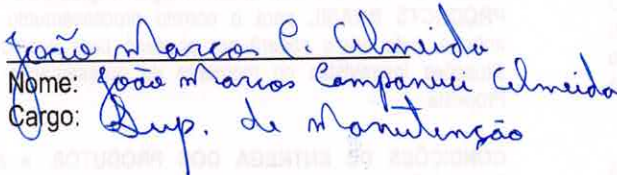 João Marcos C. Almeida
Nome: João Marcos Campanuci Almeida
Cargo: Sup. de Manutenção